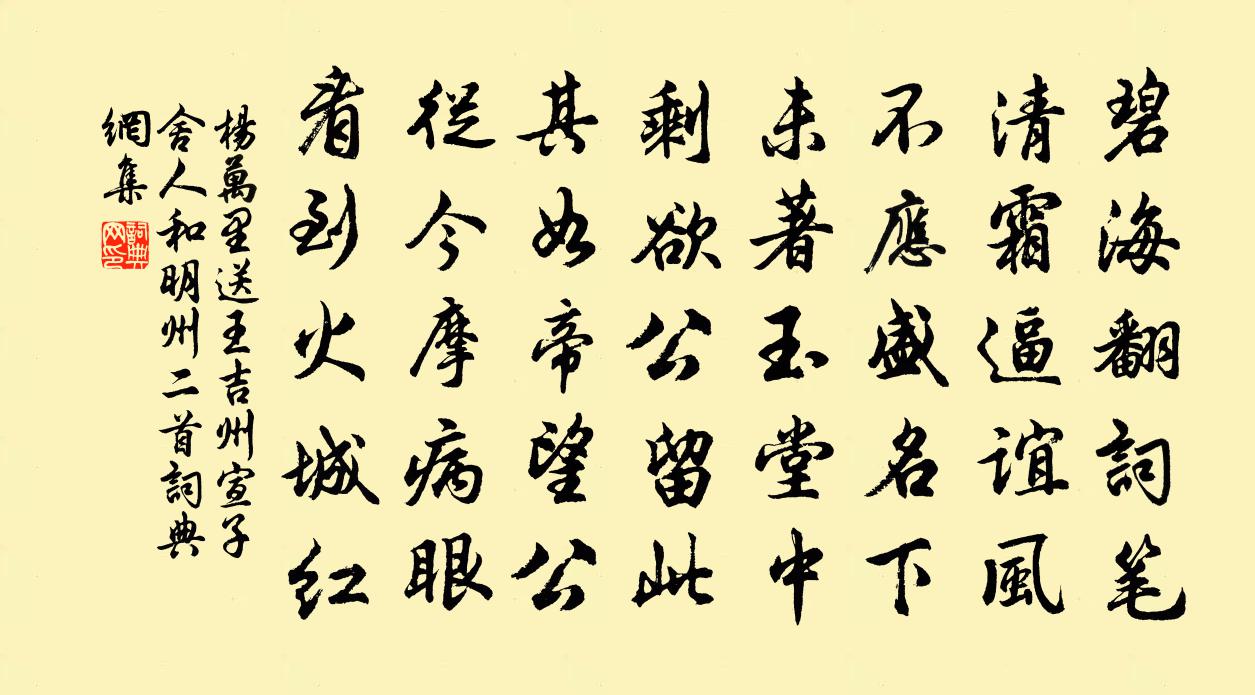 碧海翻詞笔
清霜逼誼風
不應盛名下
未著玉堂中
剩欲公留此
其如帝望公
從今摩病眼
看到火城红
楊萬里送王吉州宣子
舍人和明州二首詞典
網集
詞典
网印